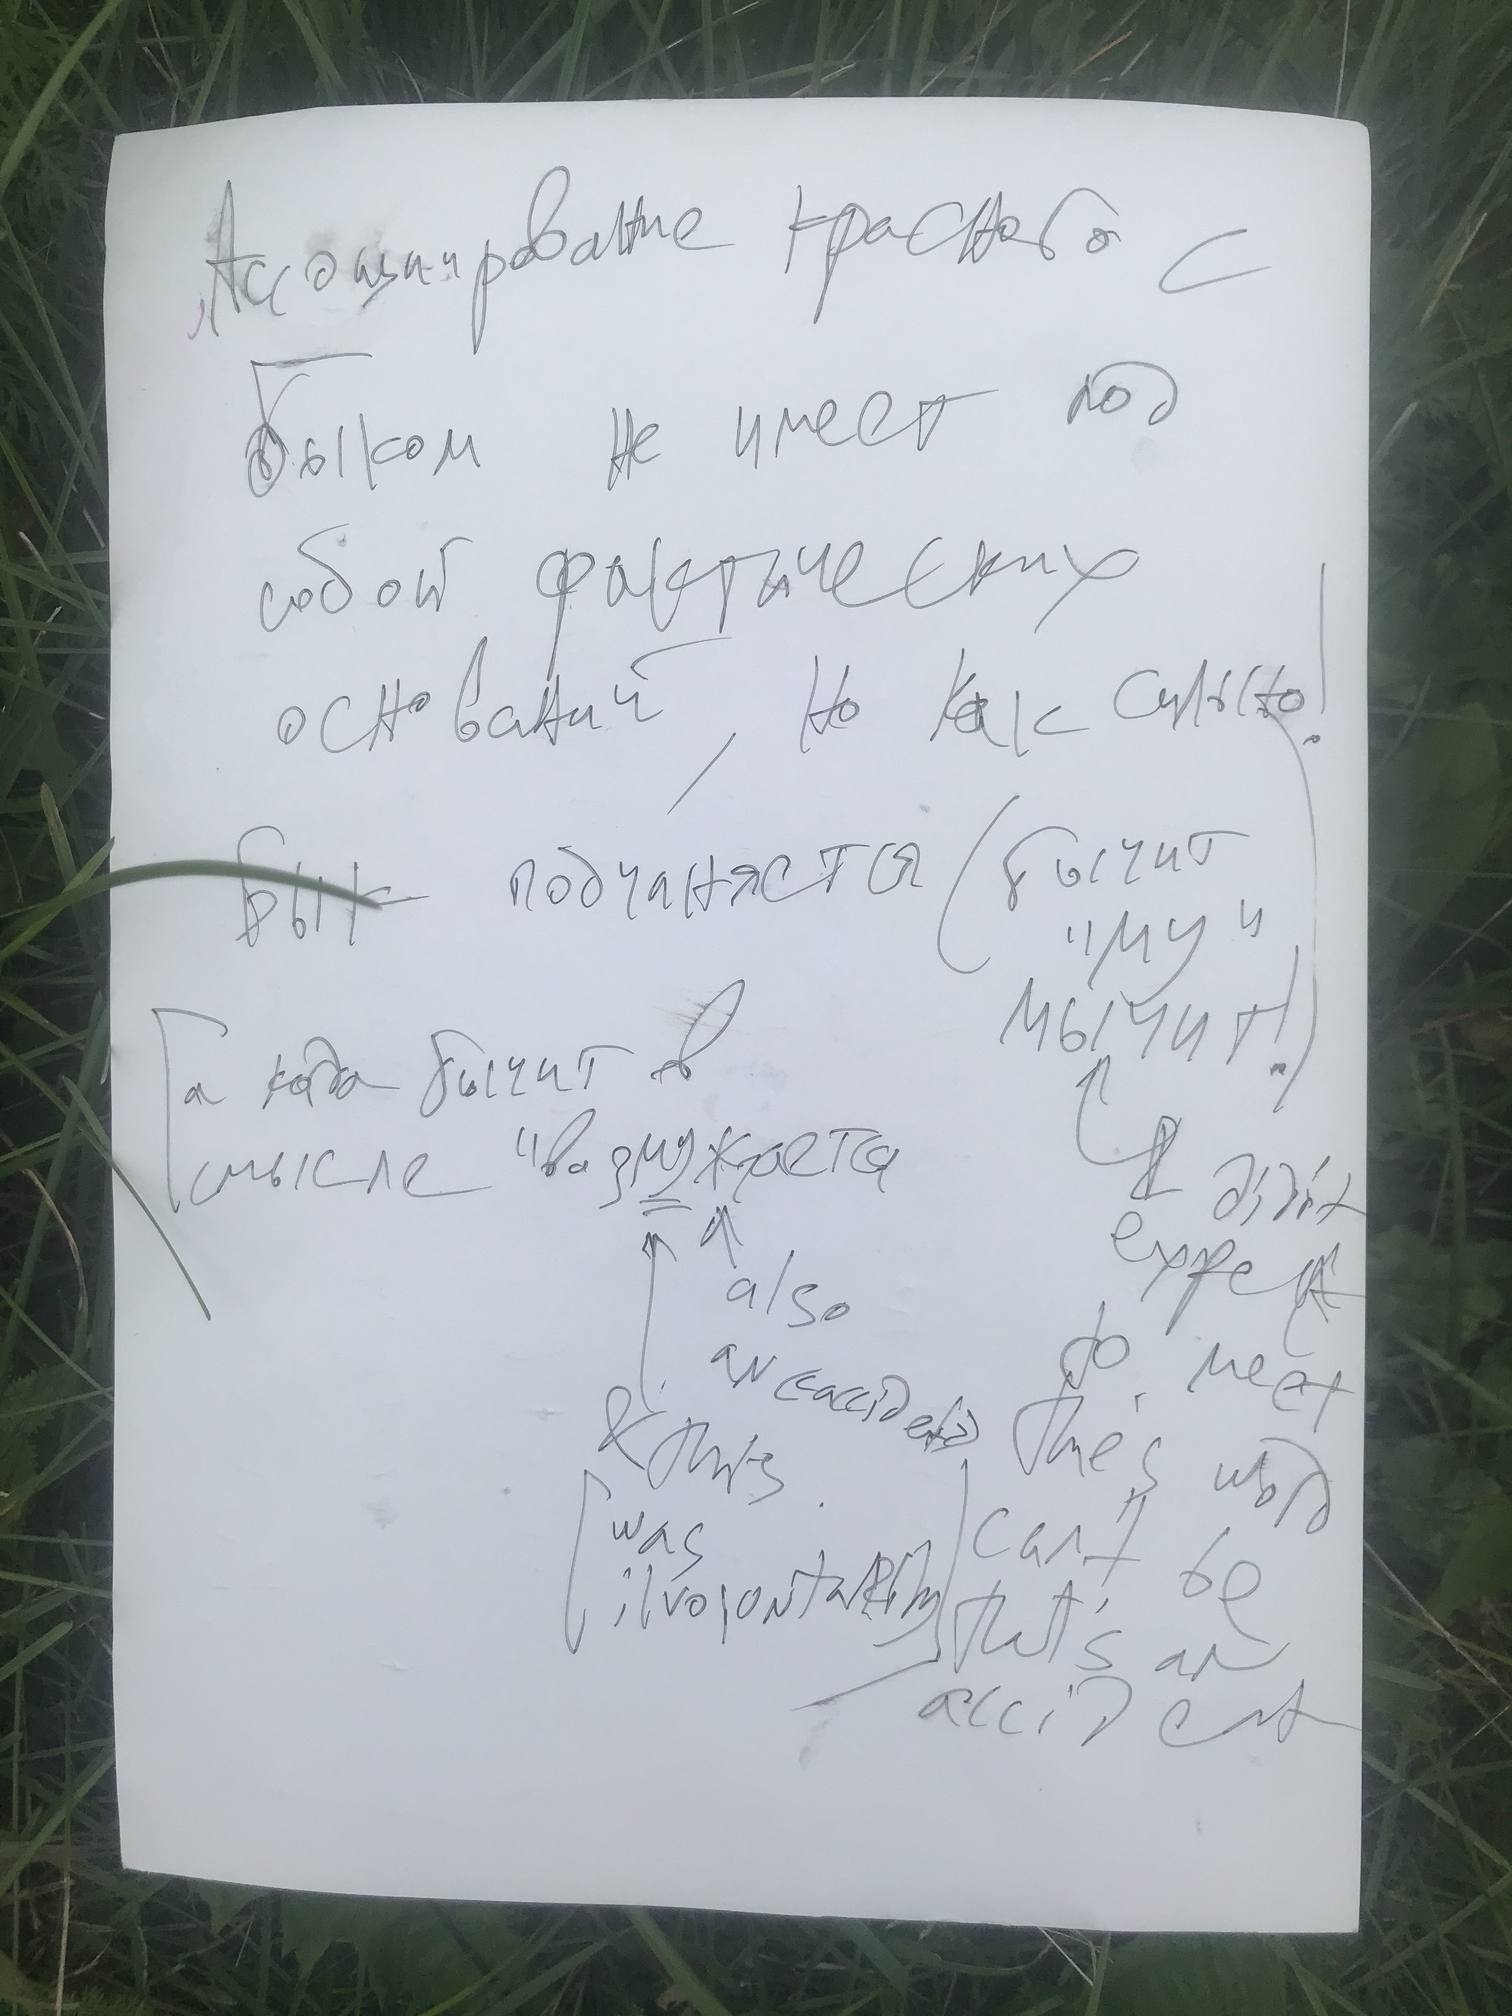 Ассоциирование красного с
быком не имеет под
собой фактических
оснований, но как сильно!
Бык подчиняется (бычит
"му"
мычит!)
а когда бычит в
смысле "возмужается
also
an accident
& this
was
I didn't
expect
to meet
this word
can't be
that's an
accident